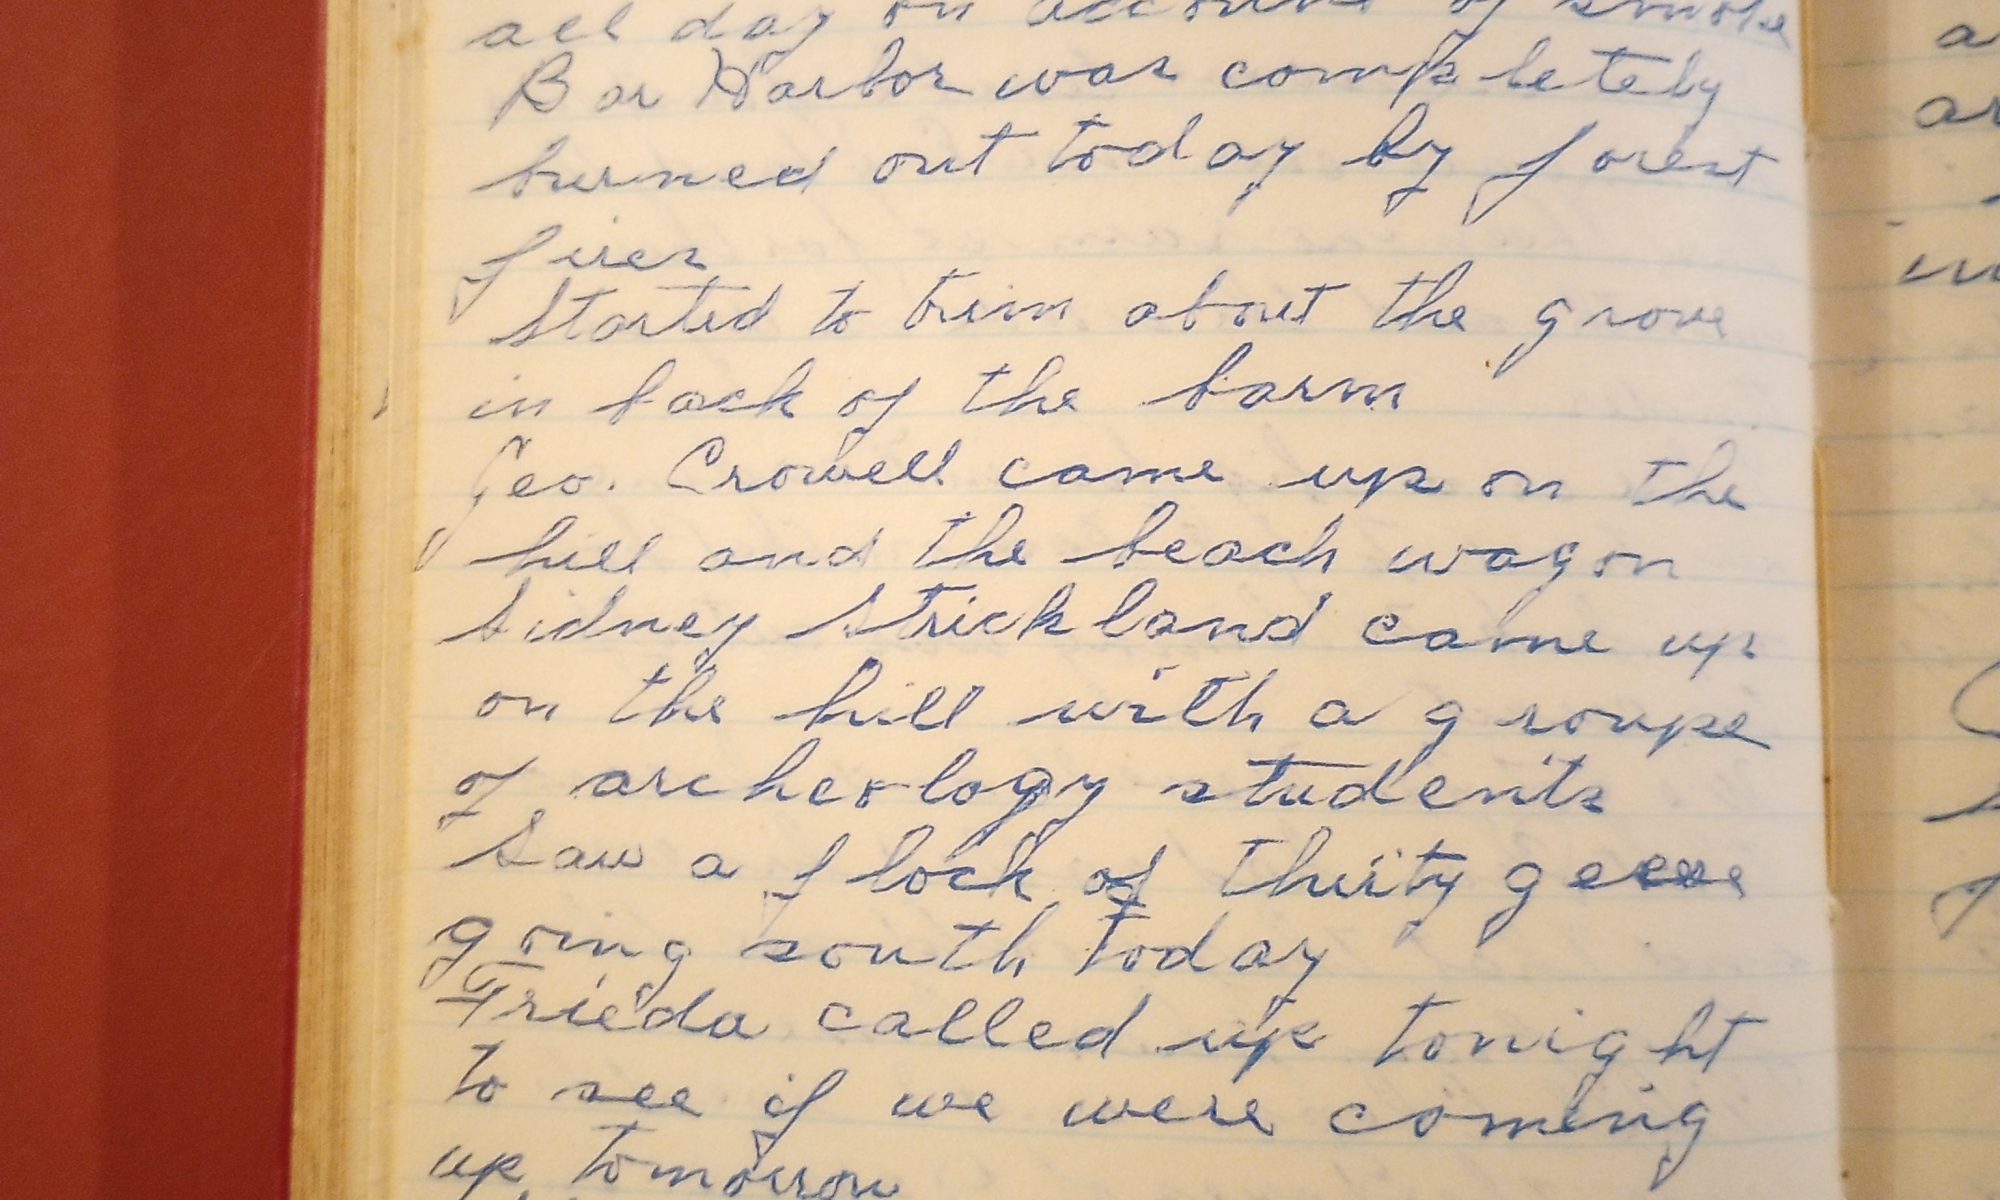 all day on account of smoke
Bar Harbor was completely
burned out today by forest
fires
Started to trim about the grove
in back of the barn
Geo. Crowell came up on the
hill and the beach wagon
Sidney Strickland came up
on the hill with a groupe
of archeology students
Saw a flock of thirty geese
going south today
Frieda called up tonight
to see if we were coming
up tomorrow